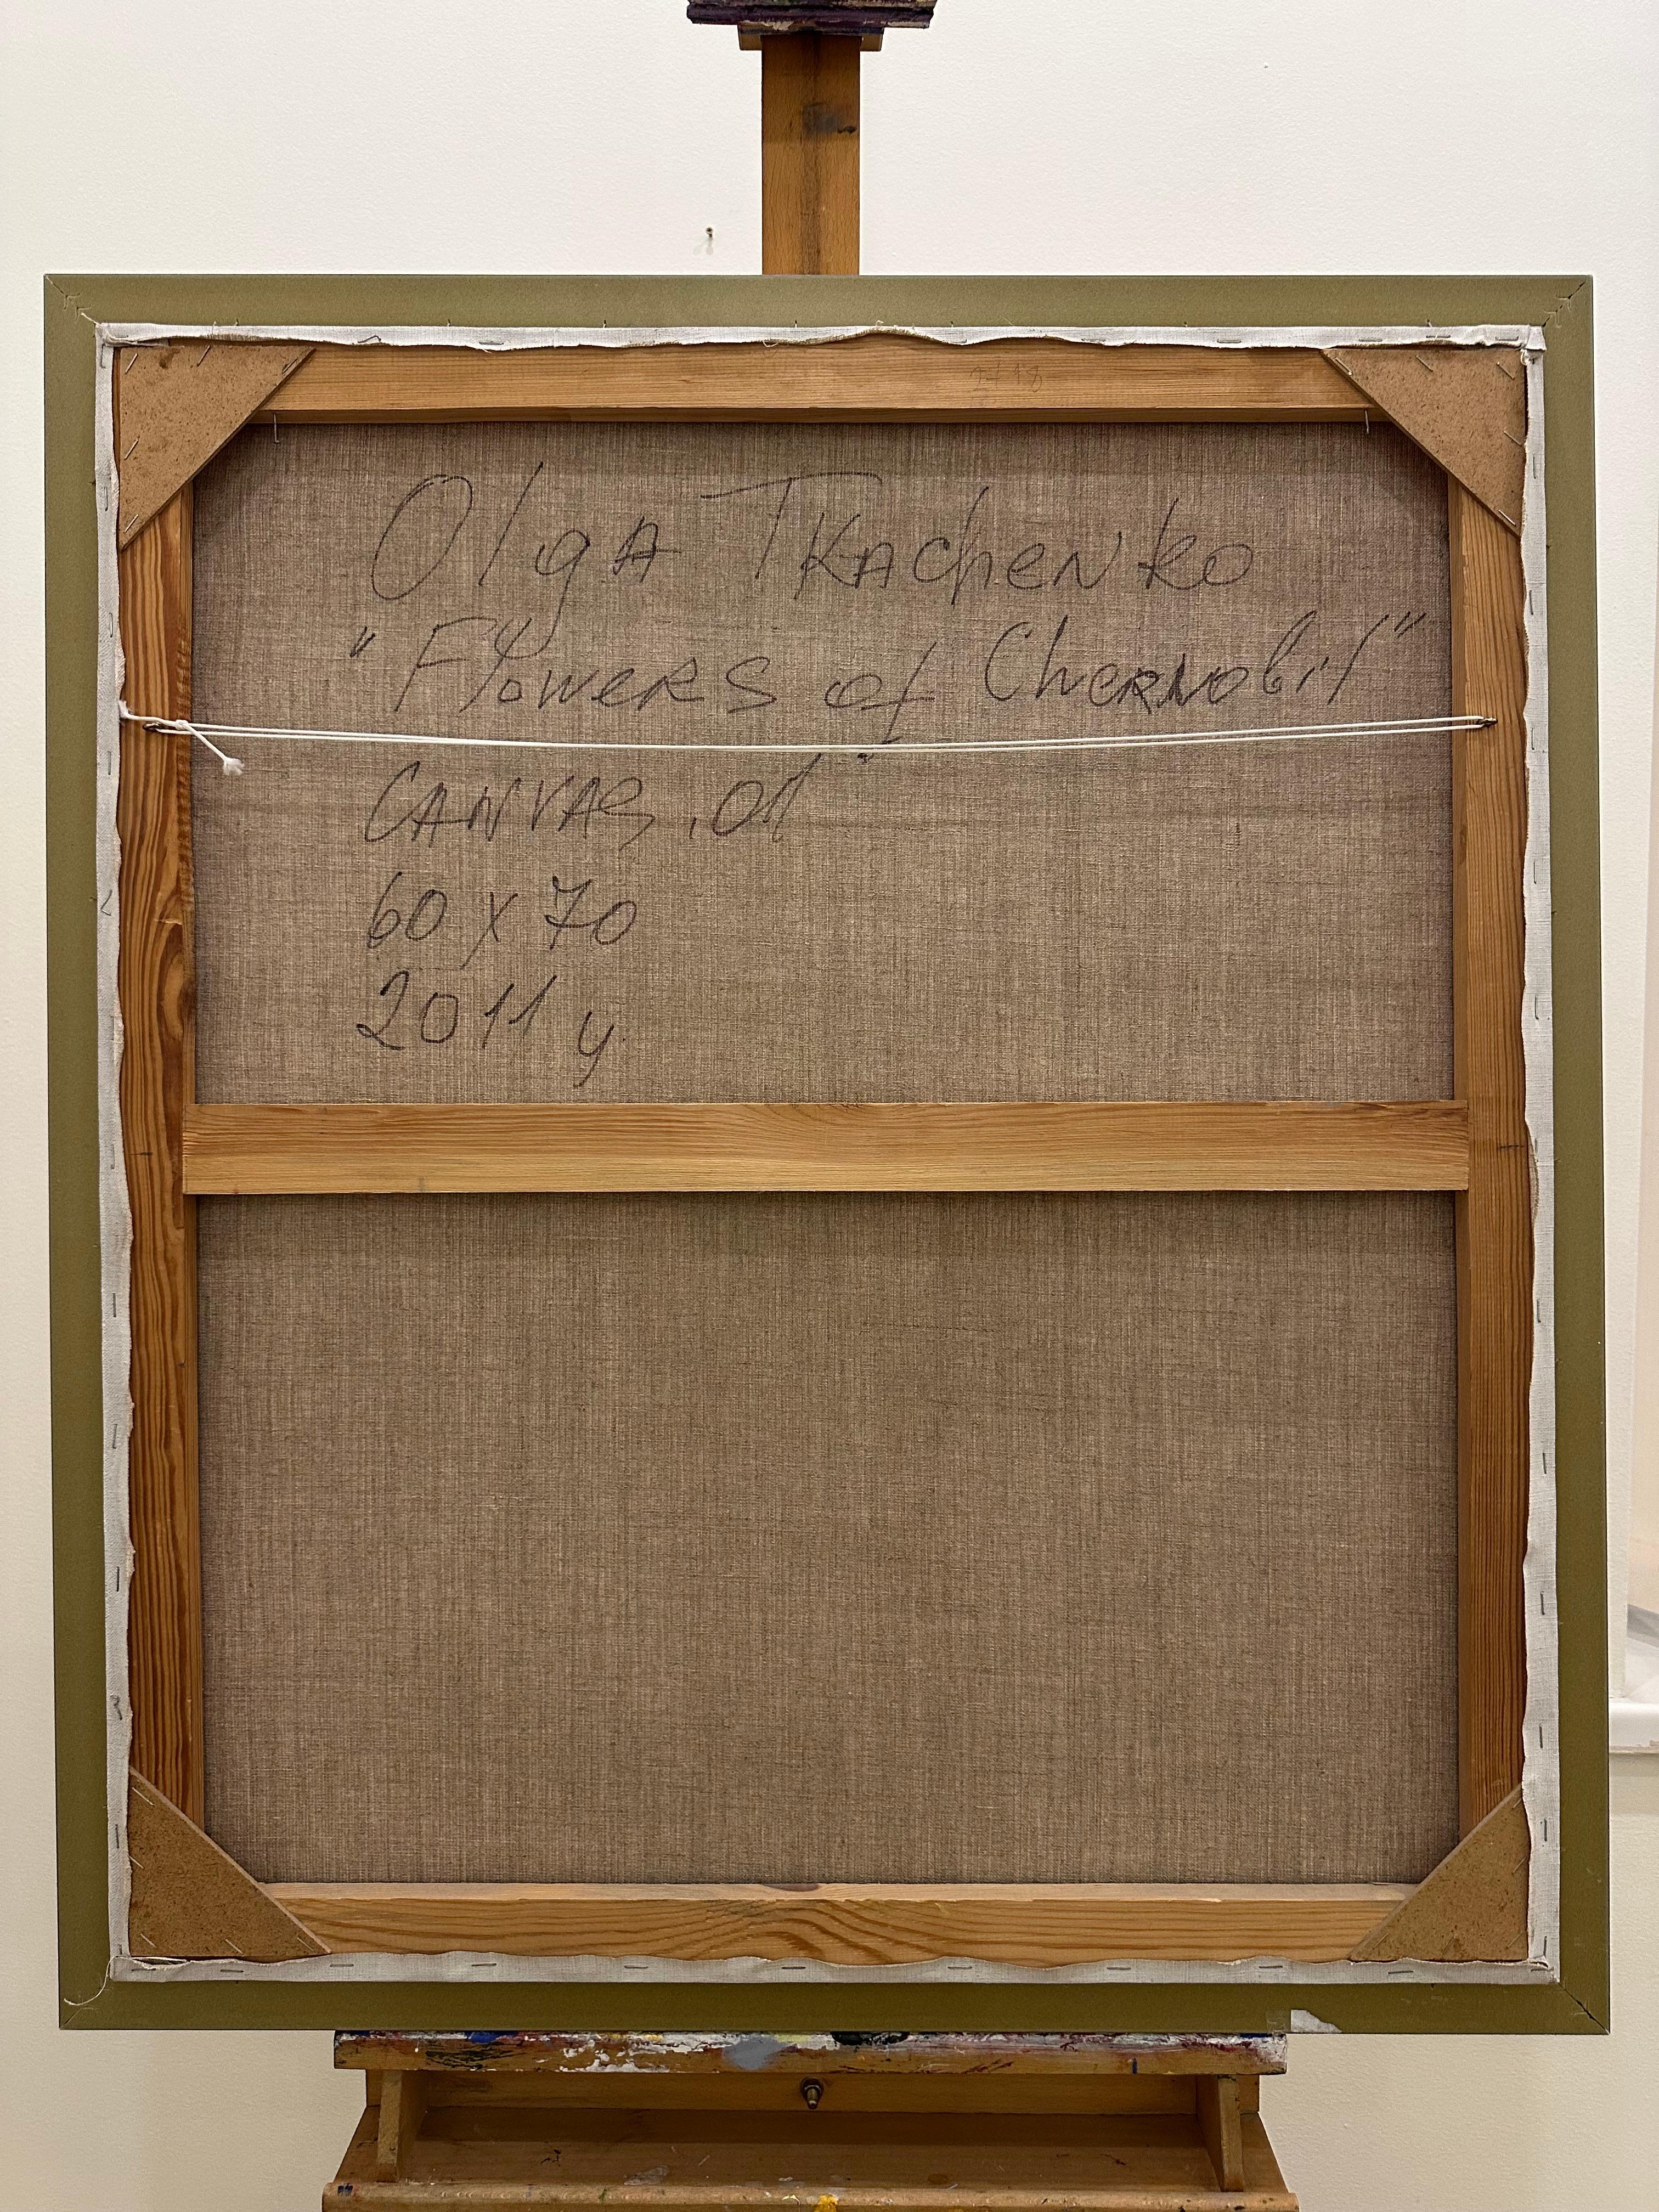 Olga Tkachenko
"Flowers of Chernobil"
Canvas, oil
60 x 70
2011 y.